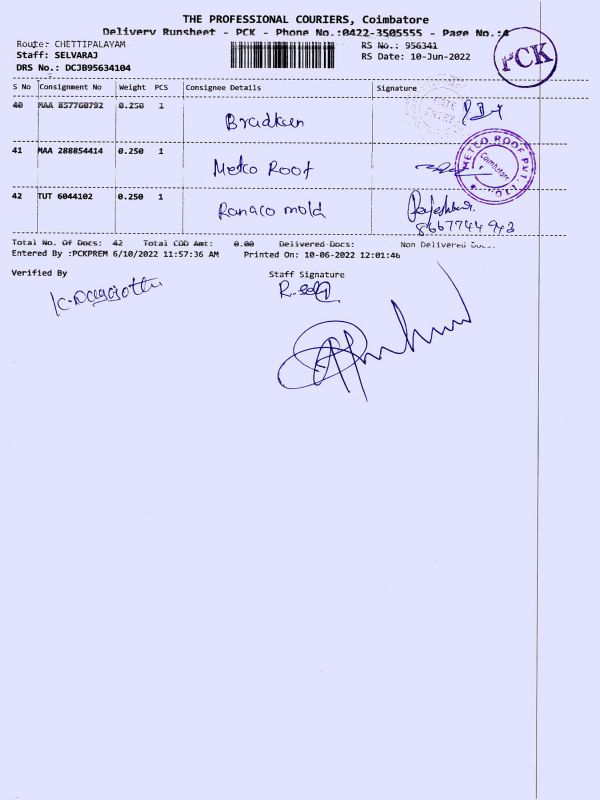 THE PROFESSIONAL COURIERS, Coimbatore
Delivery Runsheet - PCK - Phone No.:0422-3505555 - Page No.:4
Route: CHETTIPALAYAM
RS No.: 956341
Staff: SELVARAJ
RS Date: 10-Jun-2022
DRS No.: DCJB95634104
PCK
S No Consignment No Weight PCS Consignee Details Signature
40 MAA 857760792 0.250 1
Bradken
41 MAA 288854414 0.250 1
Metco Roof
METCO ROOF PVT. LTD.
Coimbatore
42 TUT 6044102 0.250 1
Ranaco mold
8667744943
Total No. Of Docs: 42 Total COD Amt: 0.00 Delivered Docs: Non Delivered Docs:
Entered By :PCKPREM 6/10/2022 11:57:36 AM Printed On: 10-06-2022 12:01:46
Verified By Staff Signature